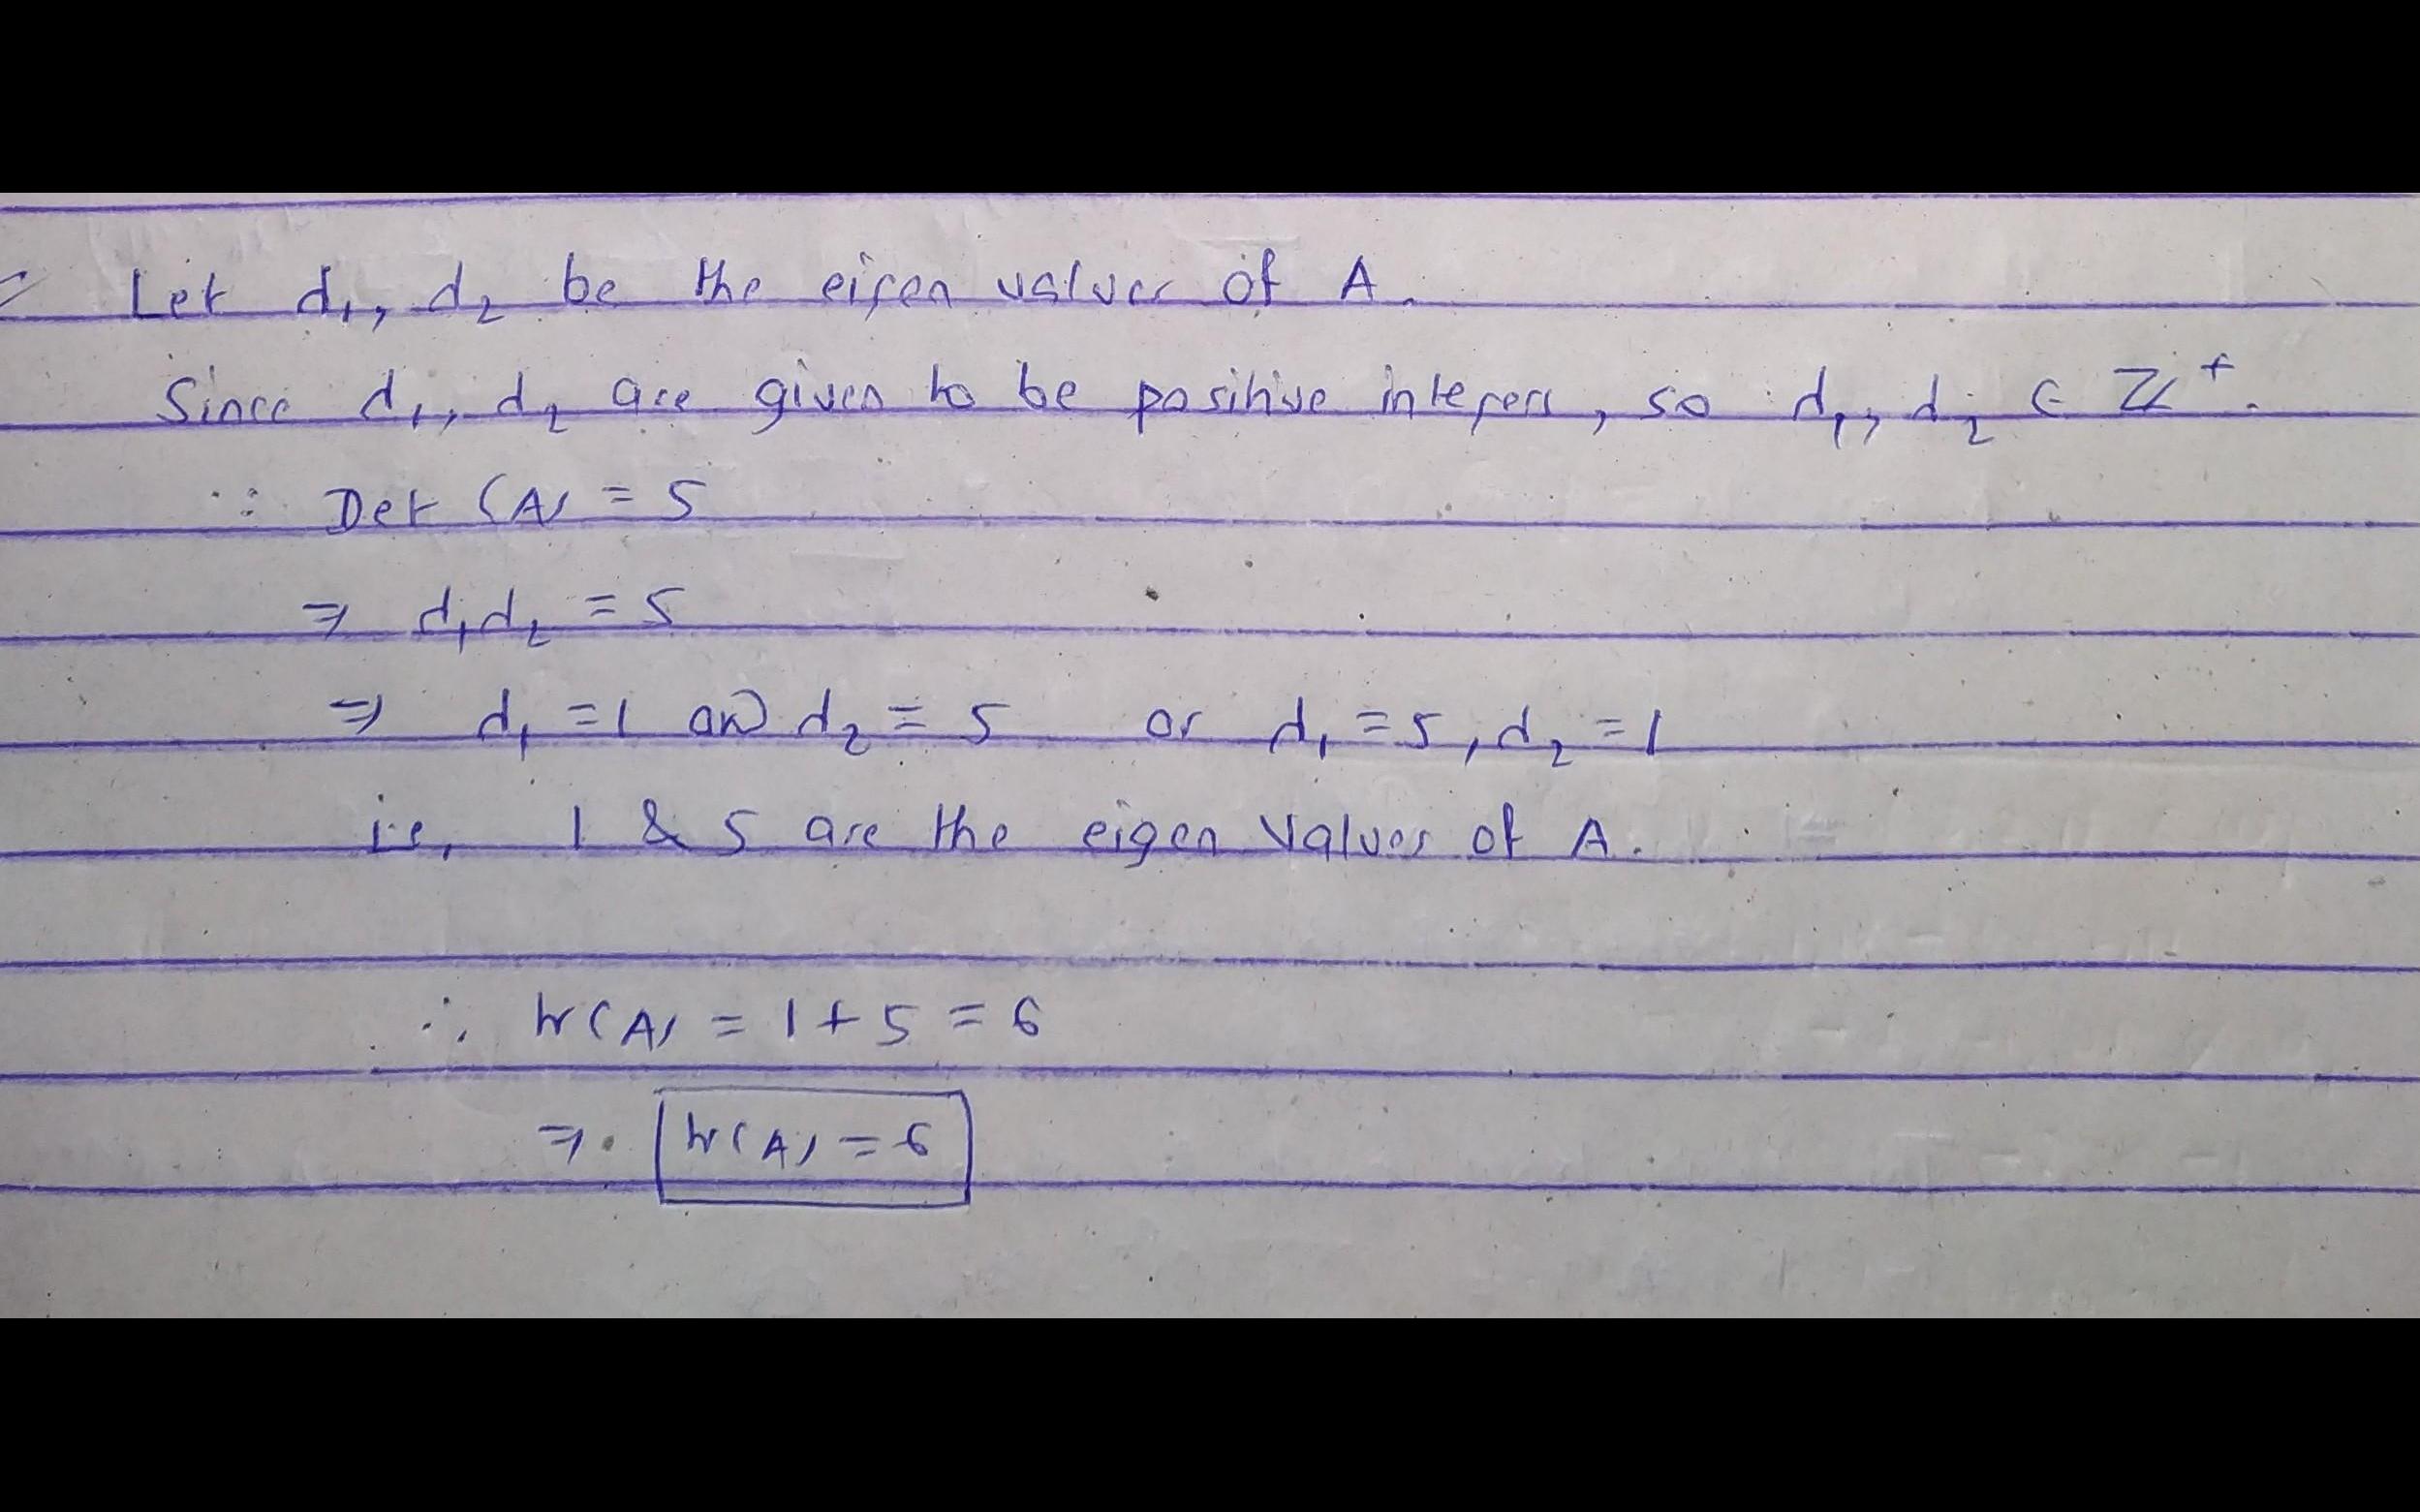 Let d₁, d₂ be the eigen values of A.
Since d₁, d₂ are given to be positive integers, so d₁, d₂ ∈ ℤ⁺.
∵ Det (A) = 5
⇒ d₁d₂ = 5
⇒ d₁ = 1 and d₂ = 5 or d₁ = 5, d₂ = 1
i.e, 1 & 5 are the eigen values of A.
∴ tr(A) = 1 + 5 = 6
⇒ tr(A) = 6